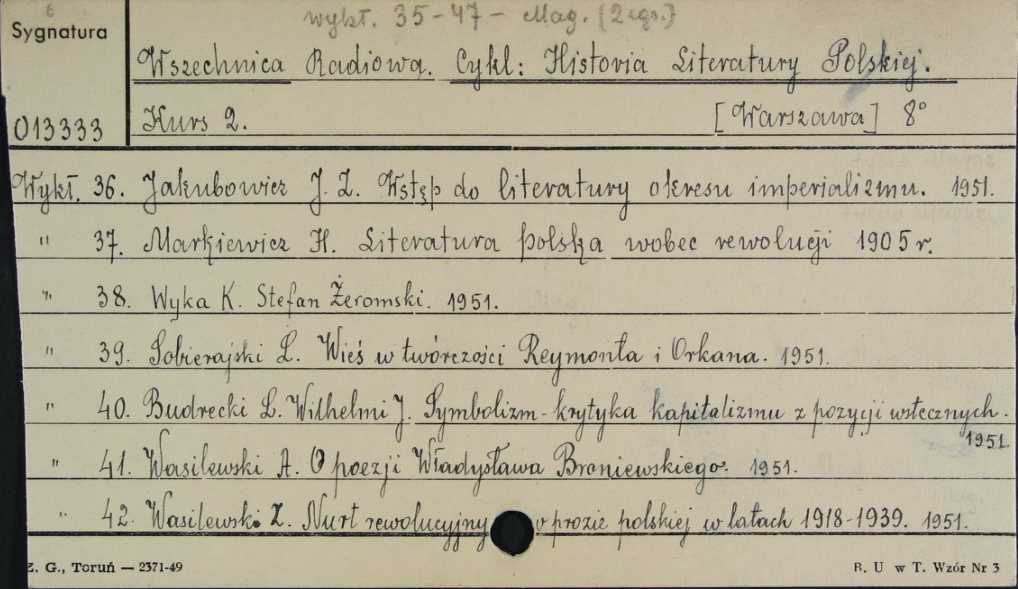 6
wykł. 35-47 - Mag. (2 egz.)
Sygnatura
Wszechnica Radiowa. Cykl: Historia Literatury Polskiej.
013333 Kurs 2. [Warszawa] 8°
Wykł. 36. Jakubowicz J. Z. Wstęp do literatury okresu imperializmu. 1951.
" 37. Markiewicz H. Literatura polska wobec rewolucji 1905 r.
" 38. Wyka K. Stefan Żeromski. 1951.
" 39. Sobierajski Z. Wieś w twórczości Reymonta i Orkana. 1951.
" 40. Budrecki L. Wilhelmi J. Symbolizm - krytyka kapitalizmu z pozycji wstecznych.
1951
" 41. Wasilewski A. O poezji Władysława Broniewskiego. 1951.
" 42. Wasilewski Z. Nurt rewolucyjny w prozie polskiej w latach 1918-1939. 1951.
Z. G., Toruń — 2371-49 B. U w T. Wzór Nr 3